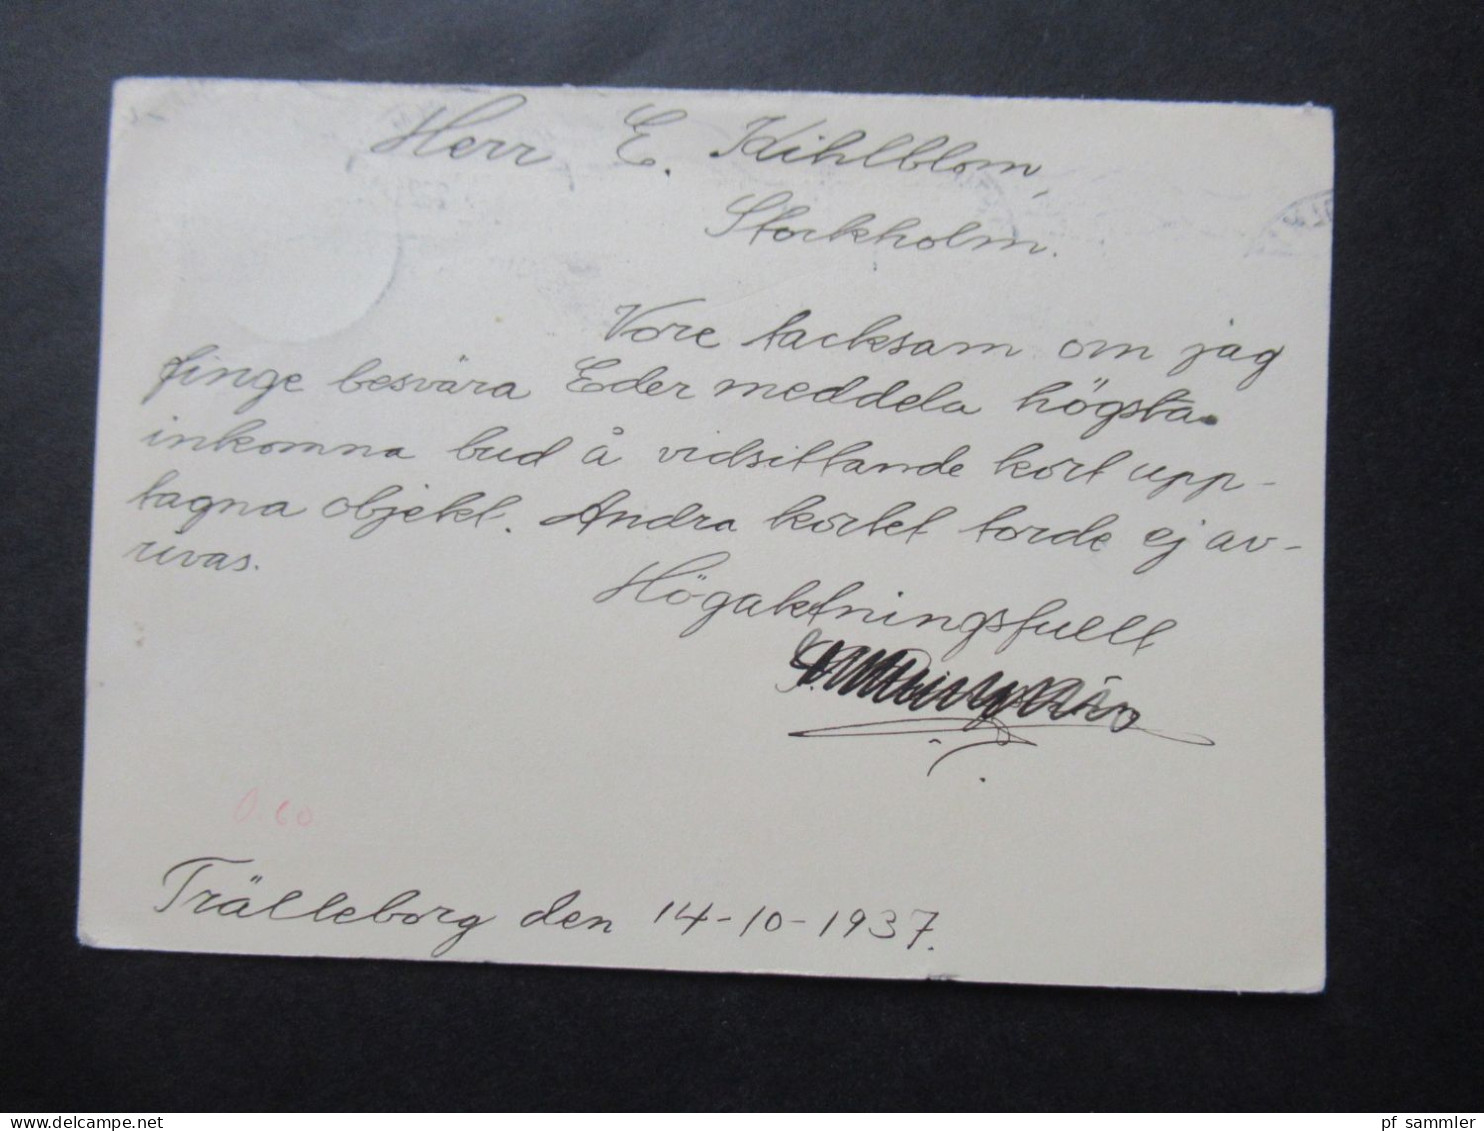 Herr E. Kihlblom,
Stockholm.
Vore tacksam om jag
finge besvära Eder meddela högsta
inkomna bud å vidsittande kort upp-
tagna objekt. Andra kortet torde ej av-
rivas.
Högaktningsfullt
0.60
Trälleborg den 14-10-1937.
pf_sammler